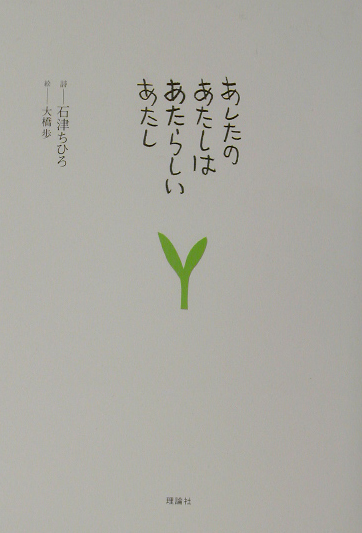 あしたの
あたしは
あたらしい
あたし
詩──石津ちひろ
絵──大橋歩
理論社